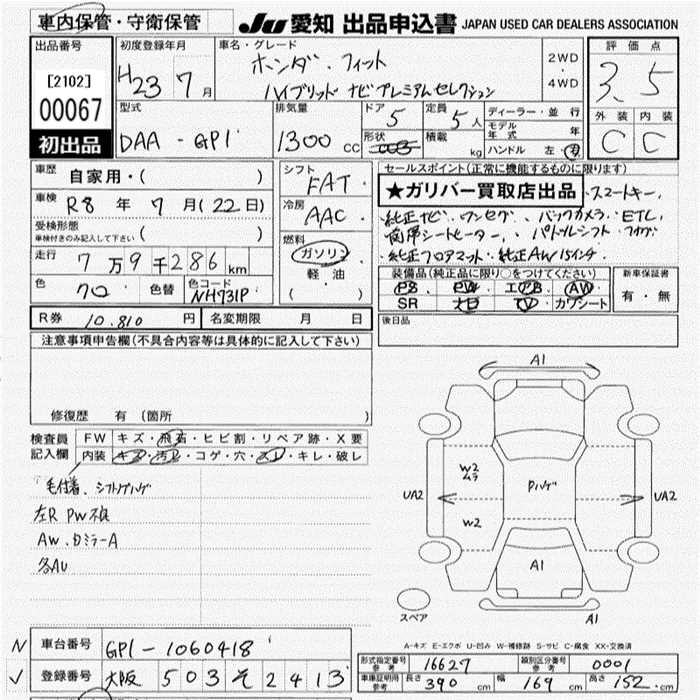 車内保管・守衛保管
JU 愛知 出品申込書 JAPAN USED CAR DEALERS ASSOCIATION
出品番号
[2102]
00067
初出品
初度登録年月
H23 7月
車名・グレード
ホンダ、フィット
ハイブリッド ナビプレミアムセレクション
2WD
・
4WD
評価点
3.5
外装 内装
C C
型式
DAA - GP1
排気量
1300 cc
ドア 5
形状
定員 5人
積載 kg
ディーラー・並行
モデル年式 年
ハンドル 左・右
車歴 自家用・( )
車検 R8年 7月(22日)
受検形態
車検付きのみ記入して下さい ( )
走行 7万9千286km
色 クロ 色替 色コード NH731P
シフト FAT
冷房 AAC
燃料
ガソリン
・
軽油
( )
セールスポイント(正常に機能するものに限ります)
★ガリバー買取店出品 スマートキー、
・純正ナビ・ワンセグ、バックカメラ・ETC
・両席シートヒーター、パドルシフト・フォグ
・純正フロアマット・純正AW15インチ
装備品(純正品に限り○をつけてください)
PS PW エアB AW
SR カワシート
TV
新車保証書
有・無
R券 10.810円 名変期限 月 日
後日品
注意事項申告欄(不具合内容等は具体的に記入して下さい)
修復歴 有(箇所 )
検査員
記入欄
FW キズ・飛石・ヒビ割・リペア跡・X要
内装 キズ・汚レ・コゲ・穴・スレ・キレ・破レ
毛付着、シフトノブハゲ
左R PW不良
AW、ドミラーA
各AU
A1
W2
ムラ
W2
Pハゲ
UA2
UA2
A1
A1
スペア
A-キズ E-エクボ U-凹み W-補修跡 S-サビ C-腐食 XX-交換済
N 車台番号 GP1-1060418
✓ 登録番号 大阪 503 そ 2413
形式指定番号 参考 16627 類別区分番号 参考 0001
車庫証明用 参考 長さ 390 cm 幅 169 cm 高さ 152 cm